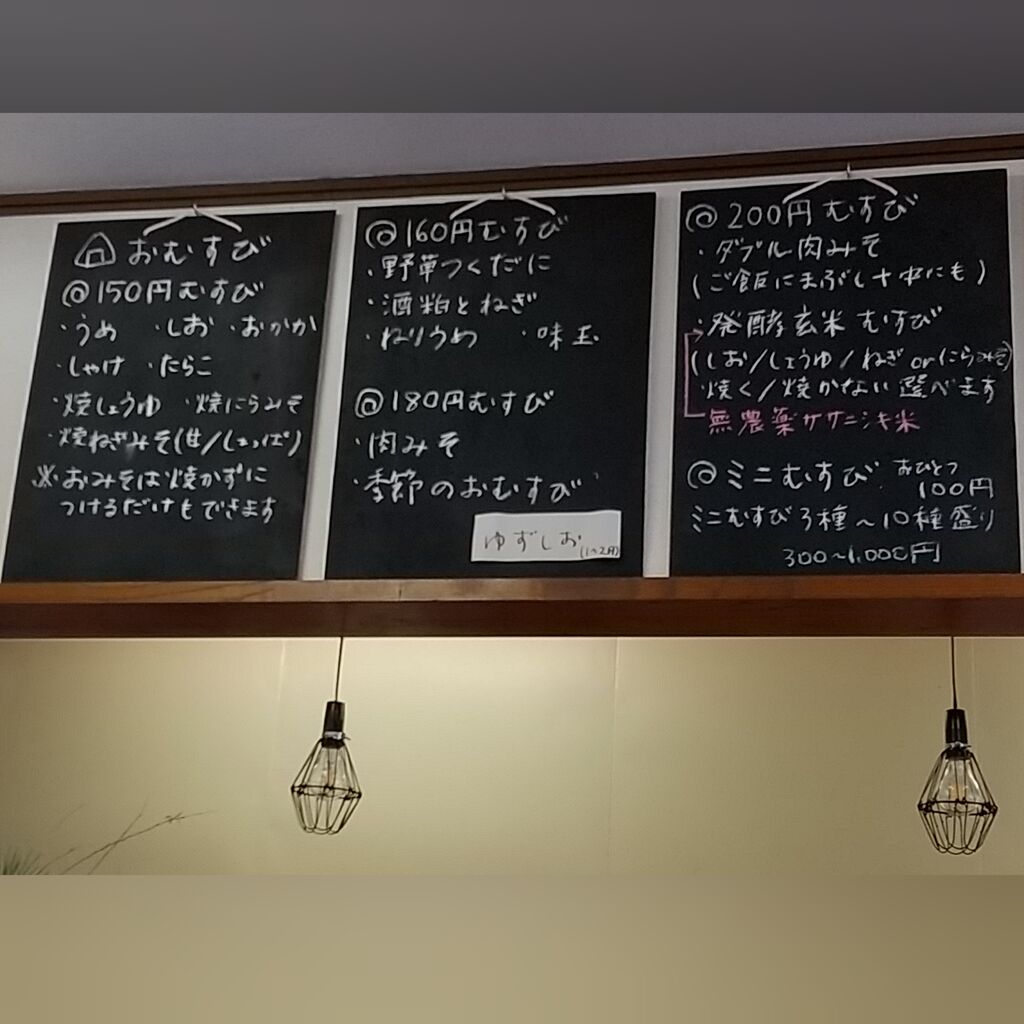 おむすび
@150円むすび
・うめ ・しお ・おかか
・しゃけ ・たらこ
・焼しょうゆ ・焼にらみそ
・焼ねぎみそ(甘/しょっぱ)
※おみそは焼かずに
つけるだけもできます
@160円むすび
・野草つくだに
・酒粕とねぎ
・ねりうめ ・味玉
@180円むすび
・肉みそ
・季節のおむすび
ゆずしお
@200円むすび
・ダブル肉みそ
(ご飯にまぶし+中にも)
・発酵玄米むすび
(しお/しょうゆ/ねぎorにらみそ)
焼く/焼かない 選べます
無農薬ササニシキ米
@ミニむすび おひとつ
100円
ミニむすび3種〜10種盛り
300〜1,000円